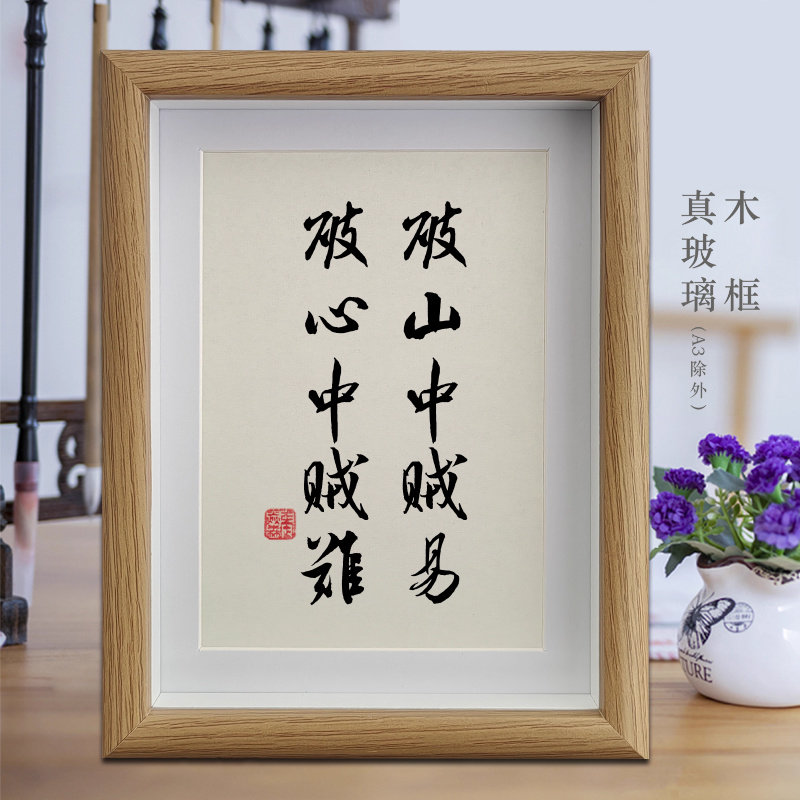 破山中贼易
破心中贼难
木框
真玻璃
(A3除外)
TURE